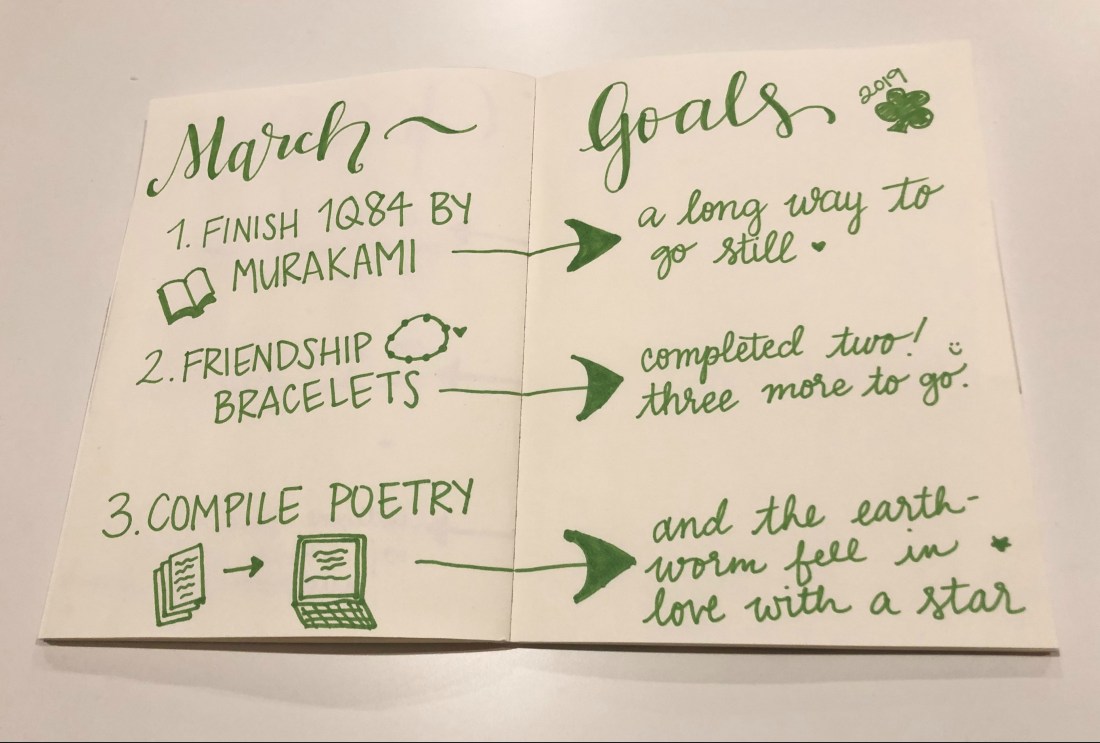 March
1. FINISH 1Q84 BY
MURAKAMI
2. FRIENDSHIP
BRACELETS
3. COMPILE POETRY
Goals
2019
a long way to
go still
completed two!
three more to go.
and the earth-
worm fell in
love with a star